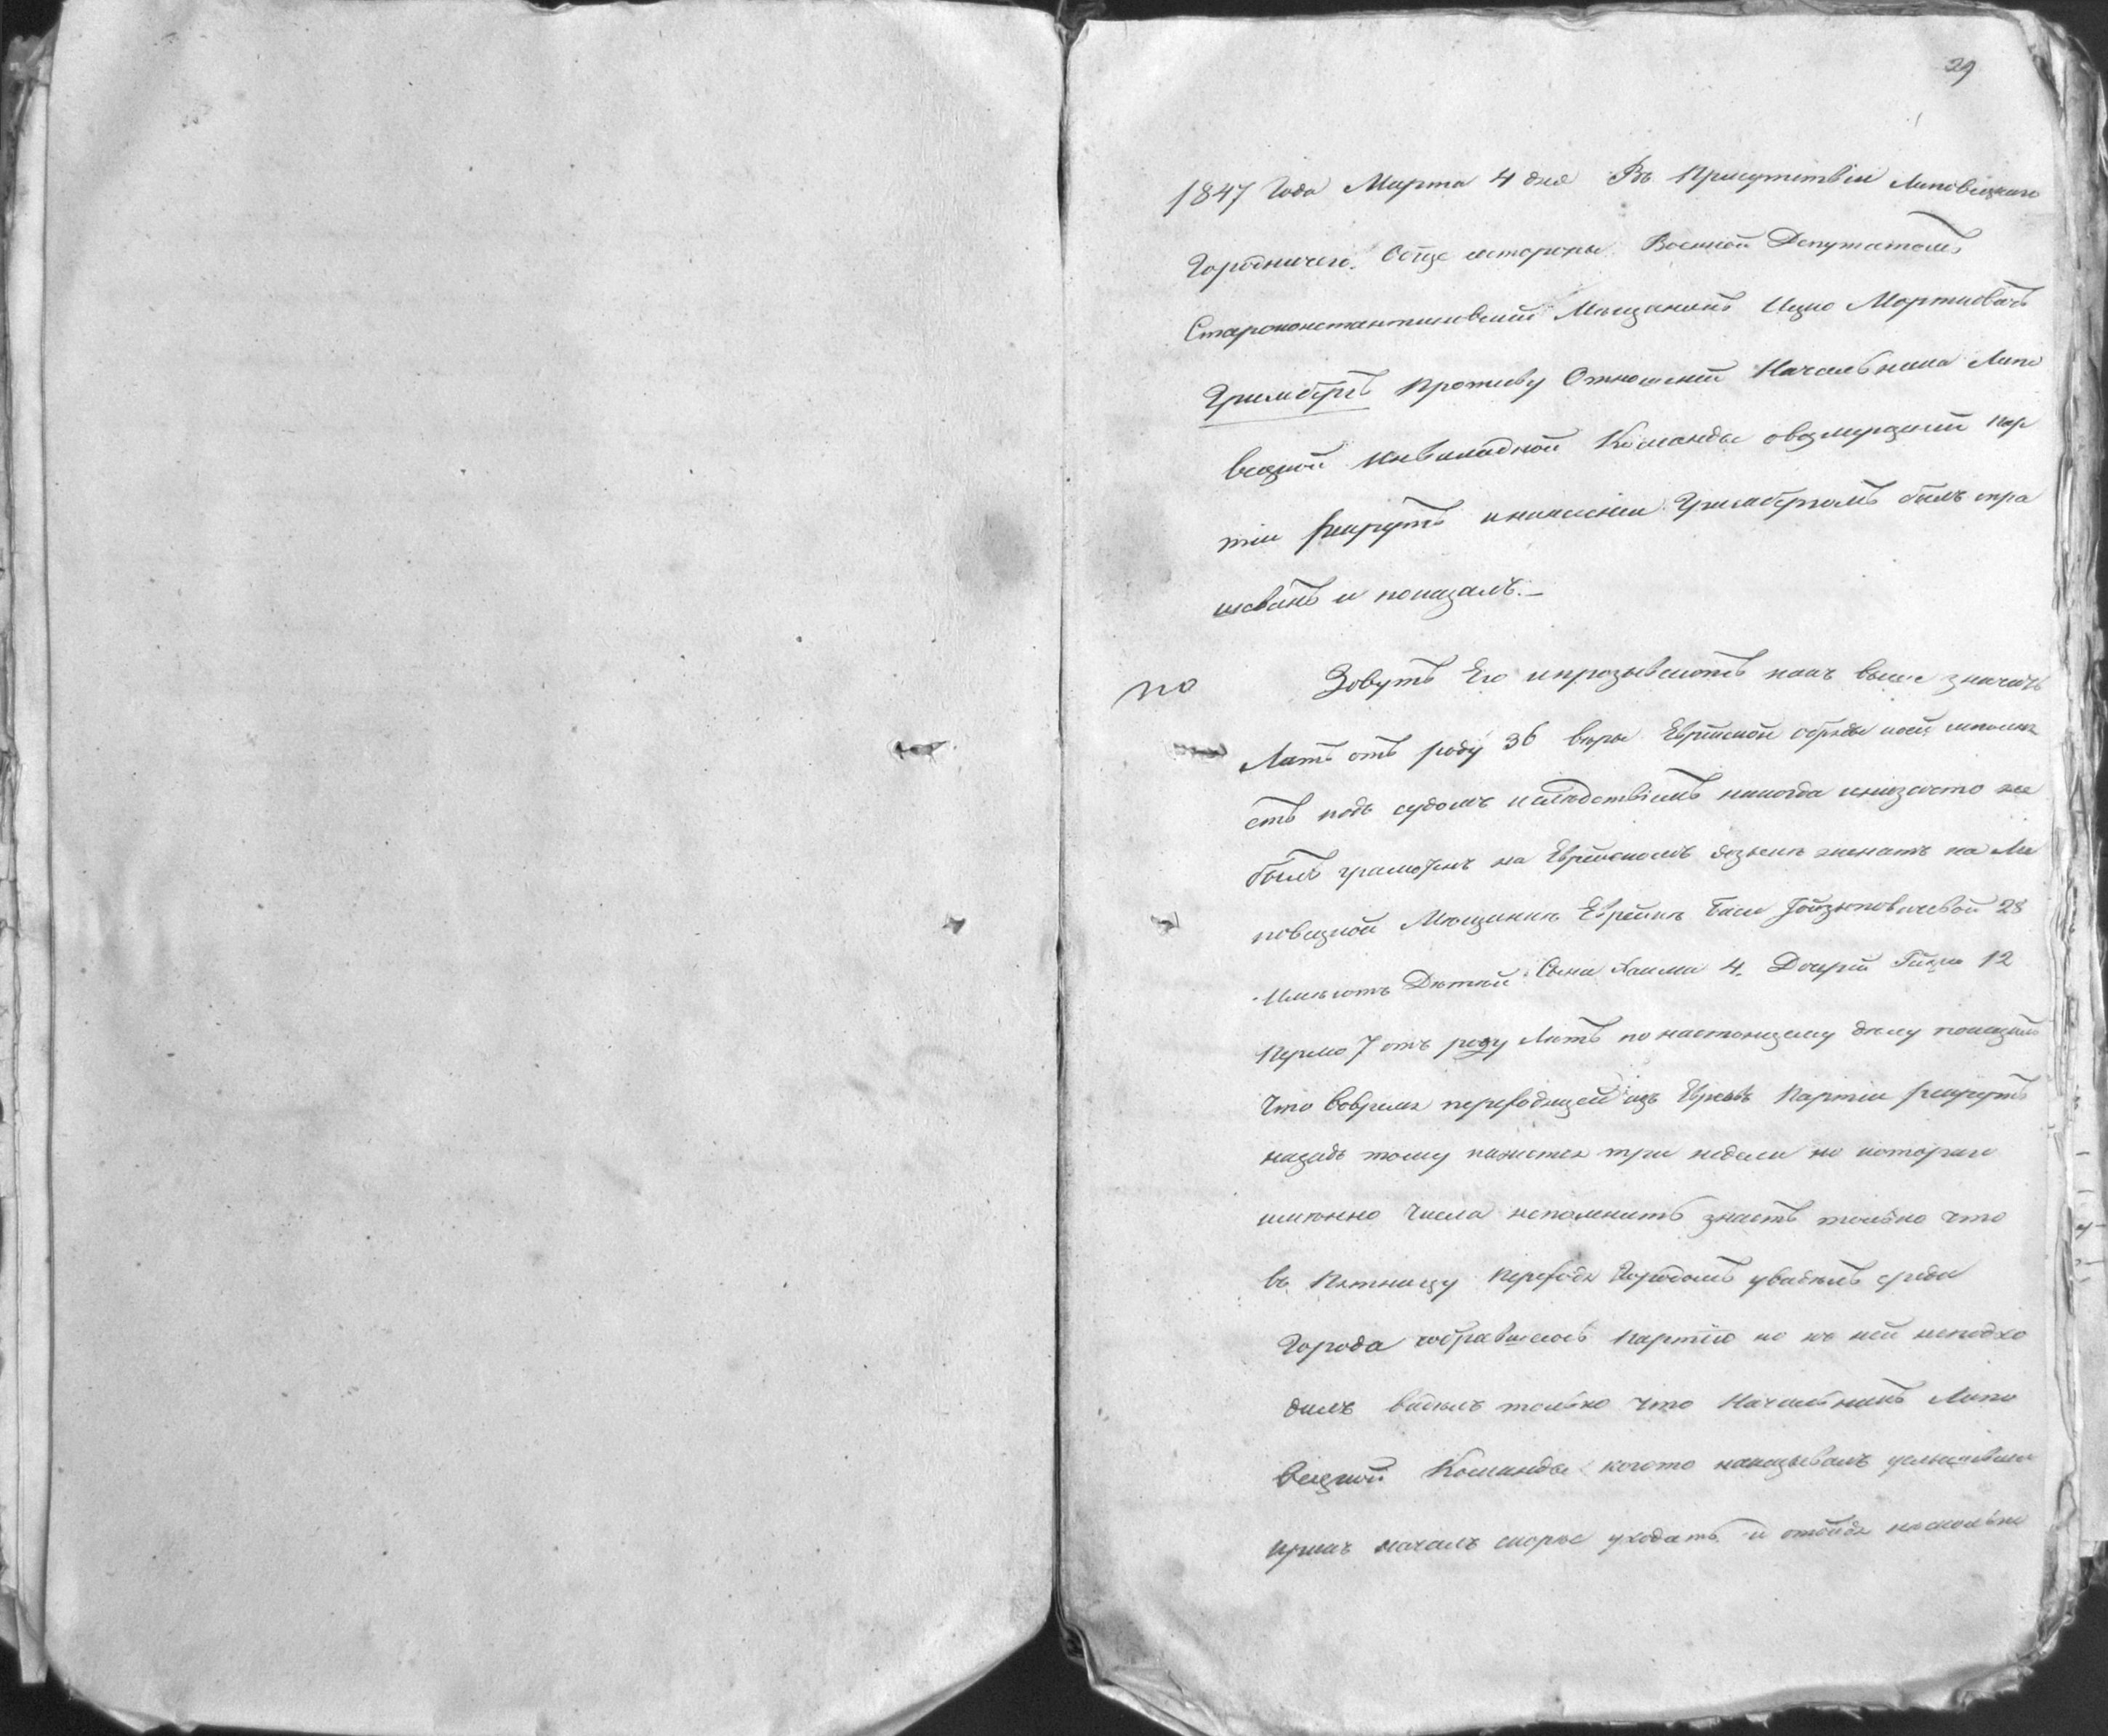 29
1847 Года Марта 4 дня Въ Присутствіи Липовецкаго
Городничего. Состороны Военной Депутатомъ
Староконстантиновскій Мѣщанинъ Ицко Мортковичъ
Гринбергъ противу Отношеній Начальника Липо
вецкой Инвалидной Команды овозмущеніи пар
тіи рекрутъ инанесеніи Гринбергомъ былъ спра
шиванъ и показалъ.—
по Зовутъ Его ипрозываютъ какъ выше значитъ
Лѣтъ отъ роду 36 вѣры Еврейской обряды ней исполня
етъ подъ судомъ ислѣдствіемъ никогда инизачто не
былъ грамотенъ на Еврейскомъ женатъ на Ли
повецкой Мѣщанкѣ Еврейкѣ Баси 28
Имѣетъ Дѣтей Сына Хаима 4. Дочерей 12
Перлю 7 отъ роду Лѣтъ по настоящему дѣлу показалъ
Что вовремя переходящей изъ Партіи рекрутъ
назадъ тому кажется три недели но котораго
имянно Числа непомнитъ знаетъ только что
въ Пятницу переходя Городомъ увидѣлъ среди
Города собравшеюсь партію но къ ней неподхо
дилъ видѣлъ только что Начальникъ Липо
вецкой Команды когото наказывалъ услышавши
крикъ началъ скорѣе уходить и отойдя нѣсколько